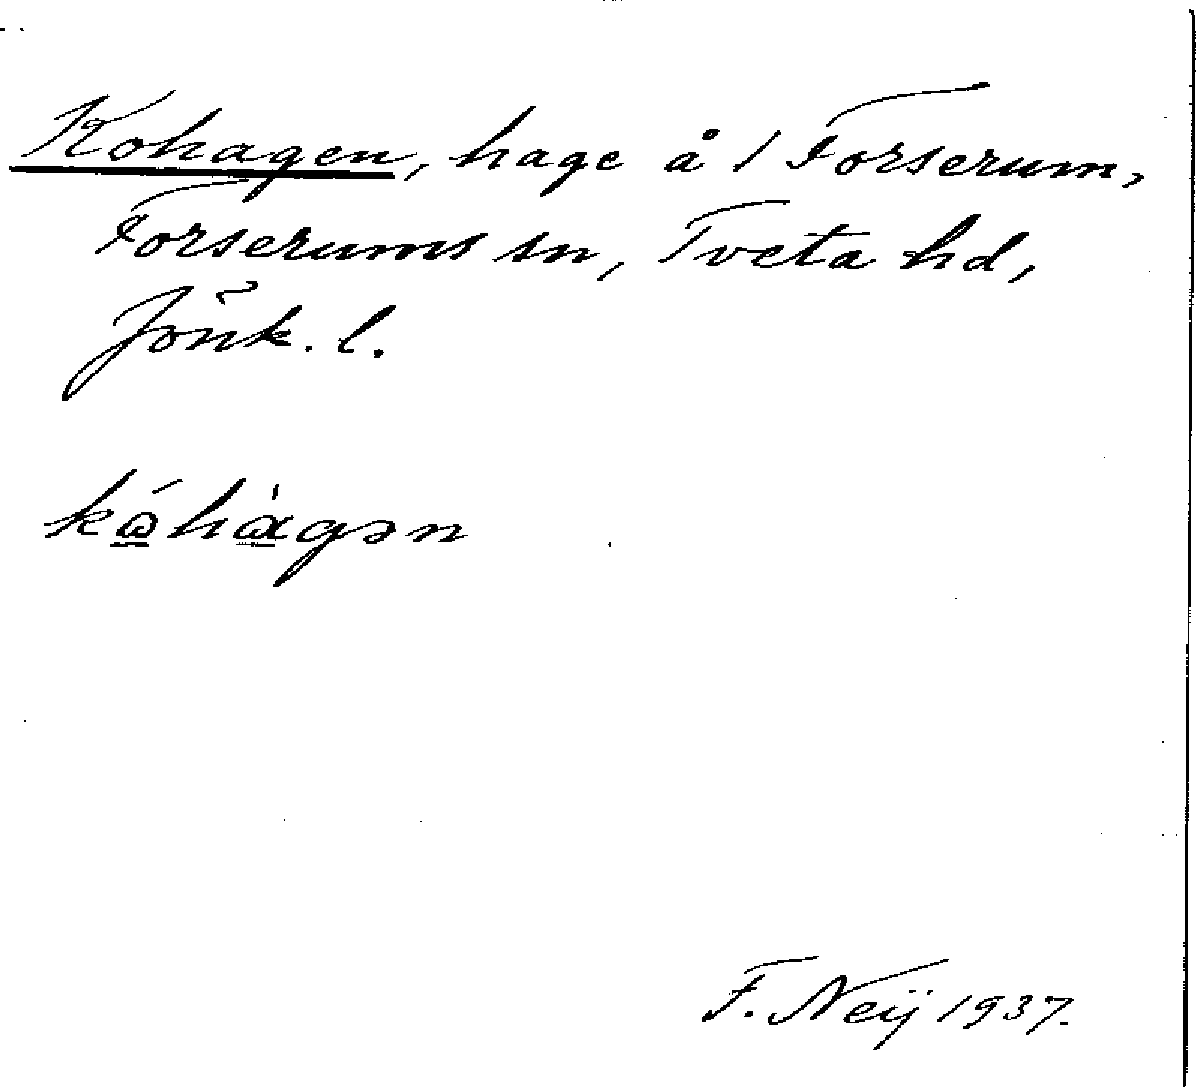 Kohagen, hage å 1 Forserum,
Forserums sn, Tveta hd,
Jönk. l.
kǻhàgən
F. Neÿ 1937.